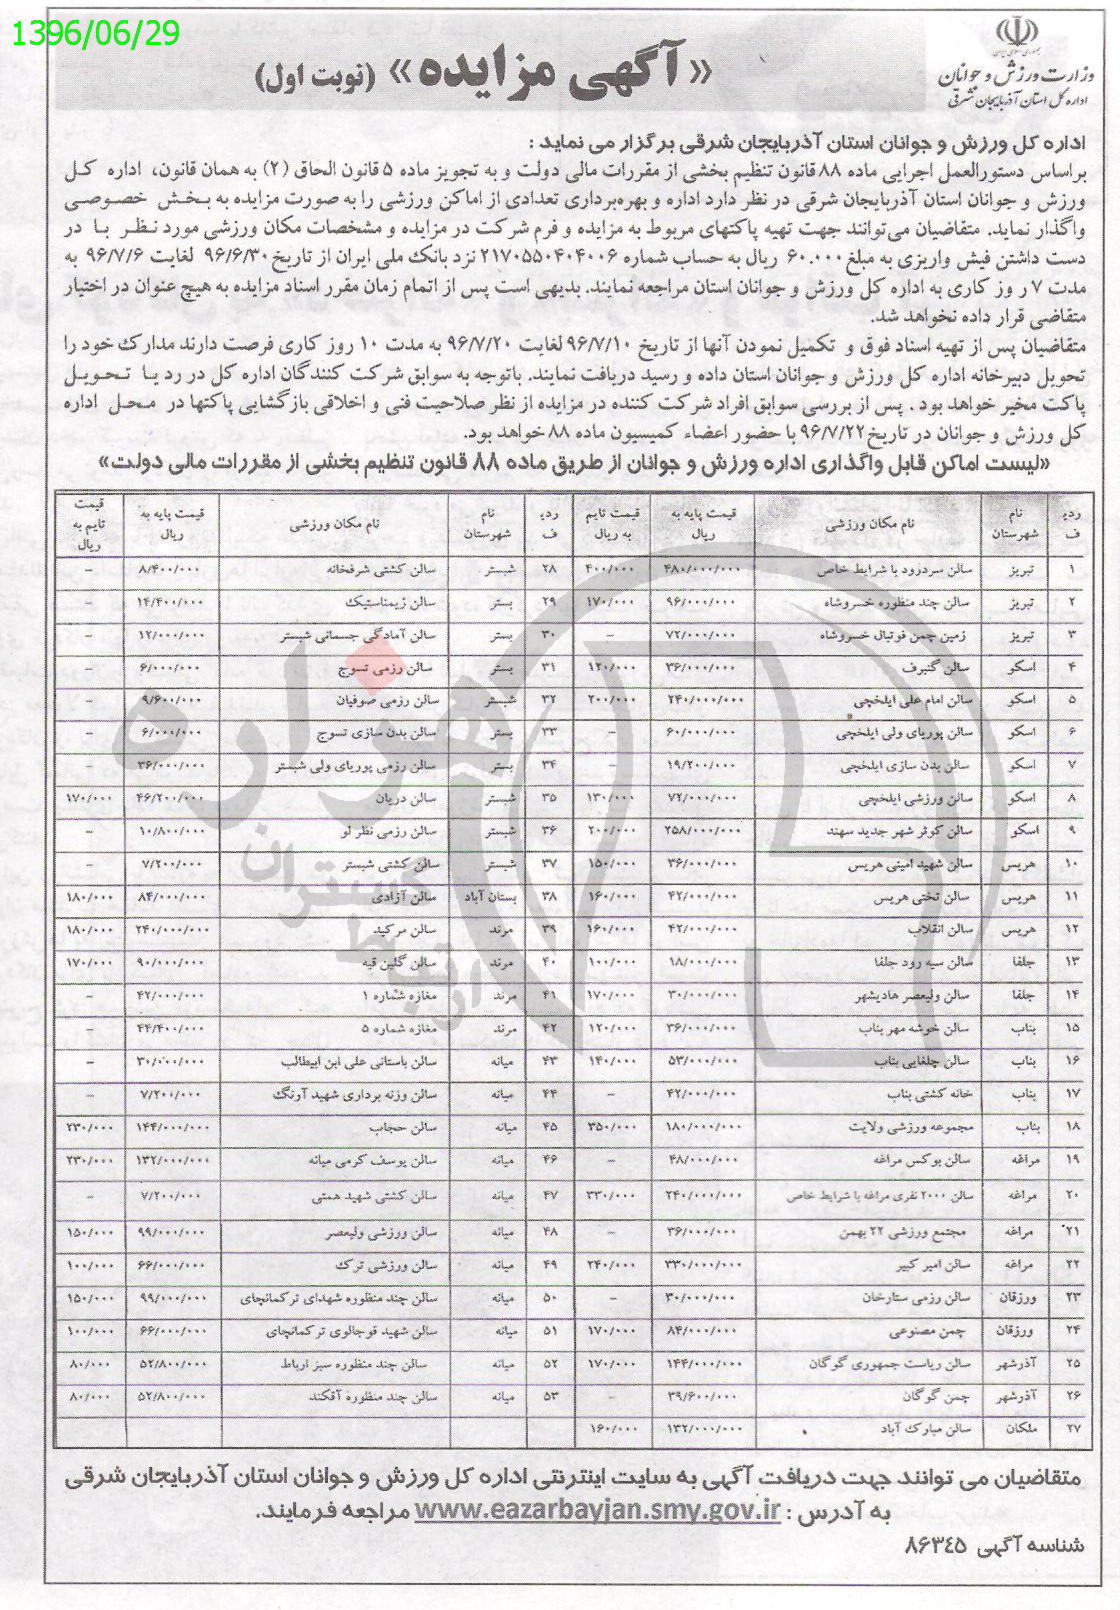 1396/06/29
جمهوری اسلامی ایران
وزارت ورزش و جوانان
اداره کل استان آذربایجان شرقی
«آگهی مزایده» (نوبت اول)
اداره کل ورزش و جوانان استان آذربایجان شرقی برگزار می نماید :
براساس دستورالعمل اجرایی ماده ۸۸ قانون تنظیم بخشی از مقررات مالی دولت و به تجویز ماده ۵ قانون الحاق (۲) به همان قانون، اداره کل
ورزش و جوانان استان آذربایجان شرقی در نظر دارد اداره و بهره‌برداری تعدادی از اماکن ورزشی را به صورت مزایده به بخش خصوصی
واگذار نماید. متقاضیان می‌توانند جهت تهیه پاکتهای مربوط به مزایده و فرم شرکت در مزایده و مشخصات مکان ورزشی مورد نظر با در
دست داشتن فیش واریزی به مبلغ ۶۰.۰۰۰ ریال به حساب شماره ۲۱۷۰۵۵۰۴۰۴۰۰۶ نزد بانک ملی ایران از تاریخ ۹۶/۶/۳۰ لغایت ۹۶/۷/۶ به
مدت ۷ ر وز کاری به اداره کل ورزش و جوانان استان مراجعه نمایند. بدیهی است پس از اتمام زمان مقرر اسناد مزایده به هیچ عنوان در اختیار
متقاضی قرار داده نخواهد شد.
متقاضیان پس از تهیه اسناد فوق و تکمیل نمودن آنها از تاریخ ۹۶/۷/۱۰ لغایت ۹۶/۷/۲۰ به مدت ۱۰ روز کاری فرصت دارند مدارک خود را
تحویل دبیرخانه اداره کل ورزش و جوانان استان داده و رسید دریافت نمایند. باتوجه به سوابق شرکت کنندگان اداره کل در رد یا تحویل
پاکت مخیر خواهد بود . پس از بررسی سوابق افراد شرکت کننده در مزایده از نظر صلاحیت فنی و اخلاقی بازگشایی پاکتها در محل اداره
کل ورزش و جوانان در تاریخ ۹۶/۷/۲۲ با حضور اعضاء کمیسیون ماده ۸۸ خواهد بود.
«لیست اماکن قابل واگذاری اداره ورزش و جوانان از طریق ماده ۸۸ قانون تنظیم بخشی از مقررات مالی دولت»
ردیف نام شهرستان نام مکان ورزشی قیمت پایه به ریال قیمت تایم به ریال ردیف نام شهرستان نام مکان ورزشی قیمت پایه به ریال قیمت تایم به ریال
۱ تبریز سالن سردرود با شرایط خاص ۴۸۰/۰۰۰/۰۰۰ ۴۰۰/۰۰۰ ۲۸ شبستر سالن کشتی شرفخانه ۸/۴۰۰/۰۰۰ –
۲ تبریز سالن چند منظوره خسروشاه ۹۶/۰۰۰/۰۰۰ ۱۷۰/۰۰۰ ۲۹ بستر سالن ژیمناستیک ۱۴/۴۰۰/۰۰۰ –
۳ تبریز زمین چمن فوتبال خسروشاه ۷۲/۰۰۰/۰۰۰ – ۳۰ بستر سالن آمادگی جسمانی شبستر ۱۲/۰۰۰/۰۰۰ –
۴ اسکو سالن گنبرف ۳۶/۰۰۰/۰۰۰ ۱۲۰/۰۰۰ ۳۱ بستر سالن رزمی تسوج ۶/۰۰۰/۰۰۰ –
۵ اسکو سالن امام علی ایلخچی ۲۴۰/۰۰۰/۰۰۰ ۲۰۰/۰۰۰ ۳۲ شبستر سالن رزمی صوفیان ۹/۶۰۰/۰۰۰ –
۶ اسکو سالن پوریای ولی ایلخچی ۶۰/۰۰۰/۰۰۰ – ۳۳ بستر سالن بدن سازی تسوج ۶/۰۰۰/۰۰۰ –
۷ اسکو سالن بدن سازی ایلخچی ۱۹/۲۰۰/۰۰۰ – ۳۴ بستر سالن رزمی پوریای ولی شبستر ۳۶/۰۰۰/۰۰۰ –
۸ اسکو سالن ورزشی ایلخچی ۷۲/۰۰۰/۰۰۰ ۱۳۰/۰۰۰ ۳۵ شبستر سالن دریان ۴۶/۲۰۰/۰۰۰ ۱۷۰/۰۰۰
۹ اسکو سالن کوثر شهر جدید سهند ۲۵۸/۰۰۰/۰۰۰ ۲۰۰/۰۰۰ ۳۶ شبستر سالن رزمی نظر لو ۱۰/۸۰۰/۰۰۰ –
۱۰ هریس سالن شهید امینی هریس ۳۶/۰۰۰/۰۰۰ ۱۵۰/۰۰۰ ۳۷ شبستر سالن کشتی شبستر ۷/۲۰۰/۰۰۰ –
۱۱ هریس سالن تختی هریس ۴۲/۰۰۰/۰۰۰ ۱۶۰/۰۰۰ ۳۸ بستان آباد سالن آزادی ۸۴/۰۰۰/۰۰۰ ۱۸۰/۰۰۰
۱۲ هریس سالن انقلاب ۴۲/۰۰۰/۰۰۰ ۱۶۰/۰۰۰ ۳۹ مرند سالن مرکید ۲۴۰/۰۰۰/۰۰۰ ۱۸۰/۰۰۰
۱۳ جلفا سالن سیه رود جلفا ۱۸/۰۰۰/۰۰۰ ۱۰۰/۰۰۰ ۴۰ مرند سالن گلین قیه ۹۰/۰۰۰/۰۰۰ ۱۷۰/۰۰۰
۱۴ جلفا سالن ولیعصر هادیشهر ۳۰/۰۰۰/۰۰۰ ۱۷۰/۰۰۰ ۴۱ مرند مغازه شماره ۱ ۴۲/۰۰۰/۰۰۰ –
۱۵ بناب سالن خوشه مهر بناب ۳۶/۰۰۰/۰۰۰ ۱۲۰/۰۰۰ ۴۲ مرند مغازه شماره ۵ ۴۴/۴۰۰/۰۰۰ –
۱۶ بناب سالن چلغایی بناب ۵۳/۰۰۰/۰۰۰ ۱۴۰/۰۰۰ ۴۳ میانه سالن باستانی علی ابن ابیطالب ۳۰/۰۰۰/۰۰۰ –
۱۷ بناب خانه کشتی بناب ۴۲/۰۰۰/۰۰۰ – ۴۴ میانه سالن وزنه برداری شهید آرنگ ۷/۲۰۰/۰۰۰ –
۱۸ بناب مجموعه ورزشی ولایت ۱۸۰/۰۰۰/۰۰۰ ۳۵۰/۰۰۰ ۴۵ میانه سالن حجاب ۱۴۴/۰۰۰/۰۰۰ ۲۳۰/۰۰۰
۱۹ مراغه سالن بوکس مراغه ۴۸/۰۰۰/۰۰۰ – ۴۶ میانه سالن یوسف کرمی میانه ۱۳۲/۰۰۰/۰۰۰ ۲۳۰/۰۰۰
۲۰ مراغه سالن ۲۰۰۰ نفری مراغه با شرایط خاص ۲۴۰/۰۰۰/۰۰۰ ۳۳۰/۰۰۰ ۴۷ میانه سالن کشتی شهید همتی ۷/۲۰۰/۰۰۰ –
۲۱ مراغه مجتمع ورزشی ۲۲ بهمن ۳۶/۰۰۰/۰۰۰ – ۴۸ میانه سالن ورزشی ولیعصر ۹۹/۰۰۰/۰۰۰ ۱۵۰/۰۰۰
۲۲ مراغه سالن امیر کبیر ۳۳۰/۰۰۰/۰۰۰ ۲۴۰/۰۰۰ ۴۹ میانه سالن ورزشی ترک ۶۶/۰۰۰/۰۰۰ ۱۰۰/۰۰۰
۲۳ ورزقان سالن رزمی ستارخان ۳۰/۰۰۰/۰۰۰ – ۵۰ میانه سالن چند منظوره شهدای ترکمانچای ۹۹/۰۰۰/۰۰۰ ۱۵۰/۰۰۰
۲۴ ورزقان چمن مصنوعی ۸۴/۰۰۰/۰۰۰ ۱۷۰/۰۰۰ ۵۱ میانه سالن شهید قوجالوی ترکمانچای ۶۶/۰۰۰/۰۰۰ ۱۰۰/۰۰۰
۲۵ آذرشهر سالن ریاست جمهوری گوگان ۱۴۴/۰۰۰/۰۰۰ ۱۷۰/۰۰۰ ۵۲ میانه سالن چند منظوره سبز ارباط ۵۲/۸۰۰/۰۰۰ ۸۰/۰۰۰
۲۶ آذرشهر چمن گوگان ۳۹/۶۰۰/۰۰۰ – ۵۳ میانه سالن چند منظوره آقکند ۵۲/۸۰۰/۰۰۰ ۸۰/۰۰۰
۲۷ ملکان سالن مبارک آباد ۱۳۲/۰۰۰/۰۰۰ ۱۶۰/۰۰۰
متقاضیان می توانند جهت دریافت آگهی به سایت اینترنتی اداره کل ورزش و جوانان استان آذربایجان شرقی
به آدرس : www.eazarbayjan.smy.gov.ir مراجعه فرمایند.
شناسه آگهی ۸۶۳۴۵